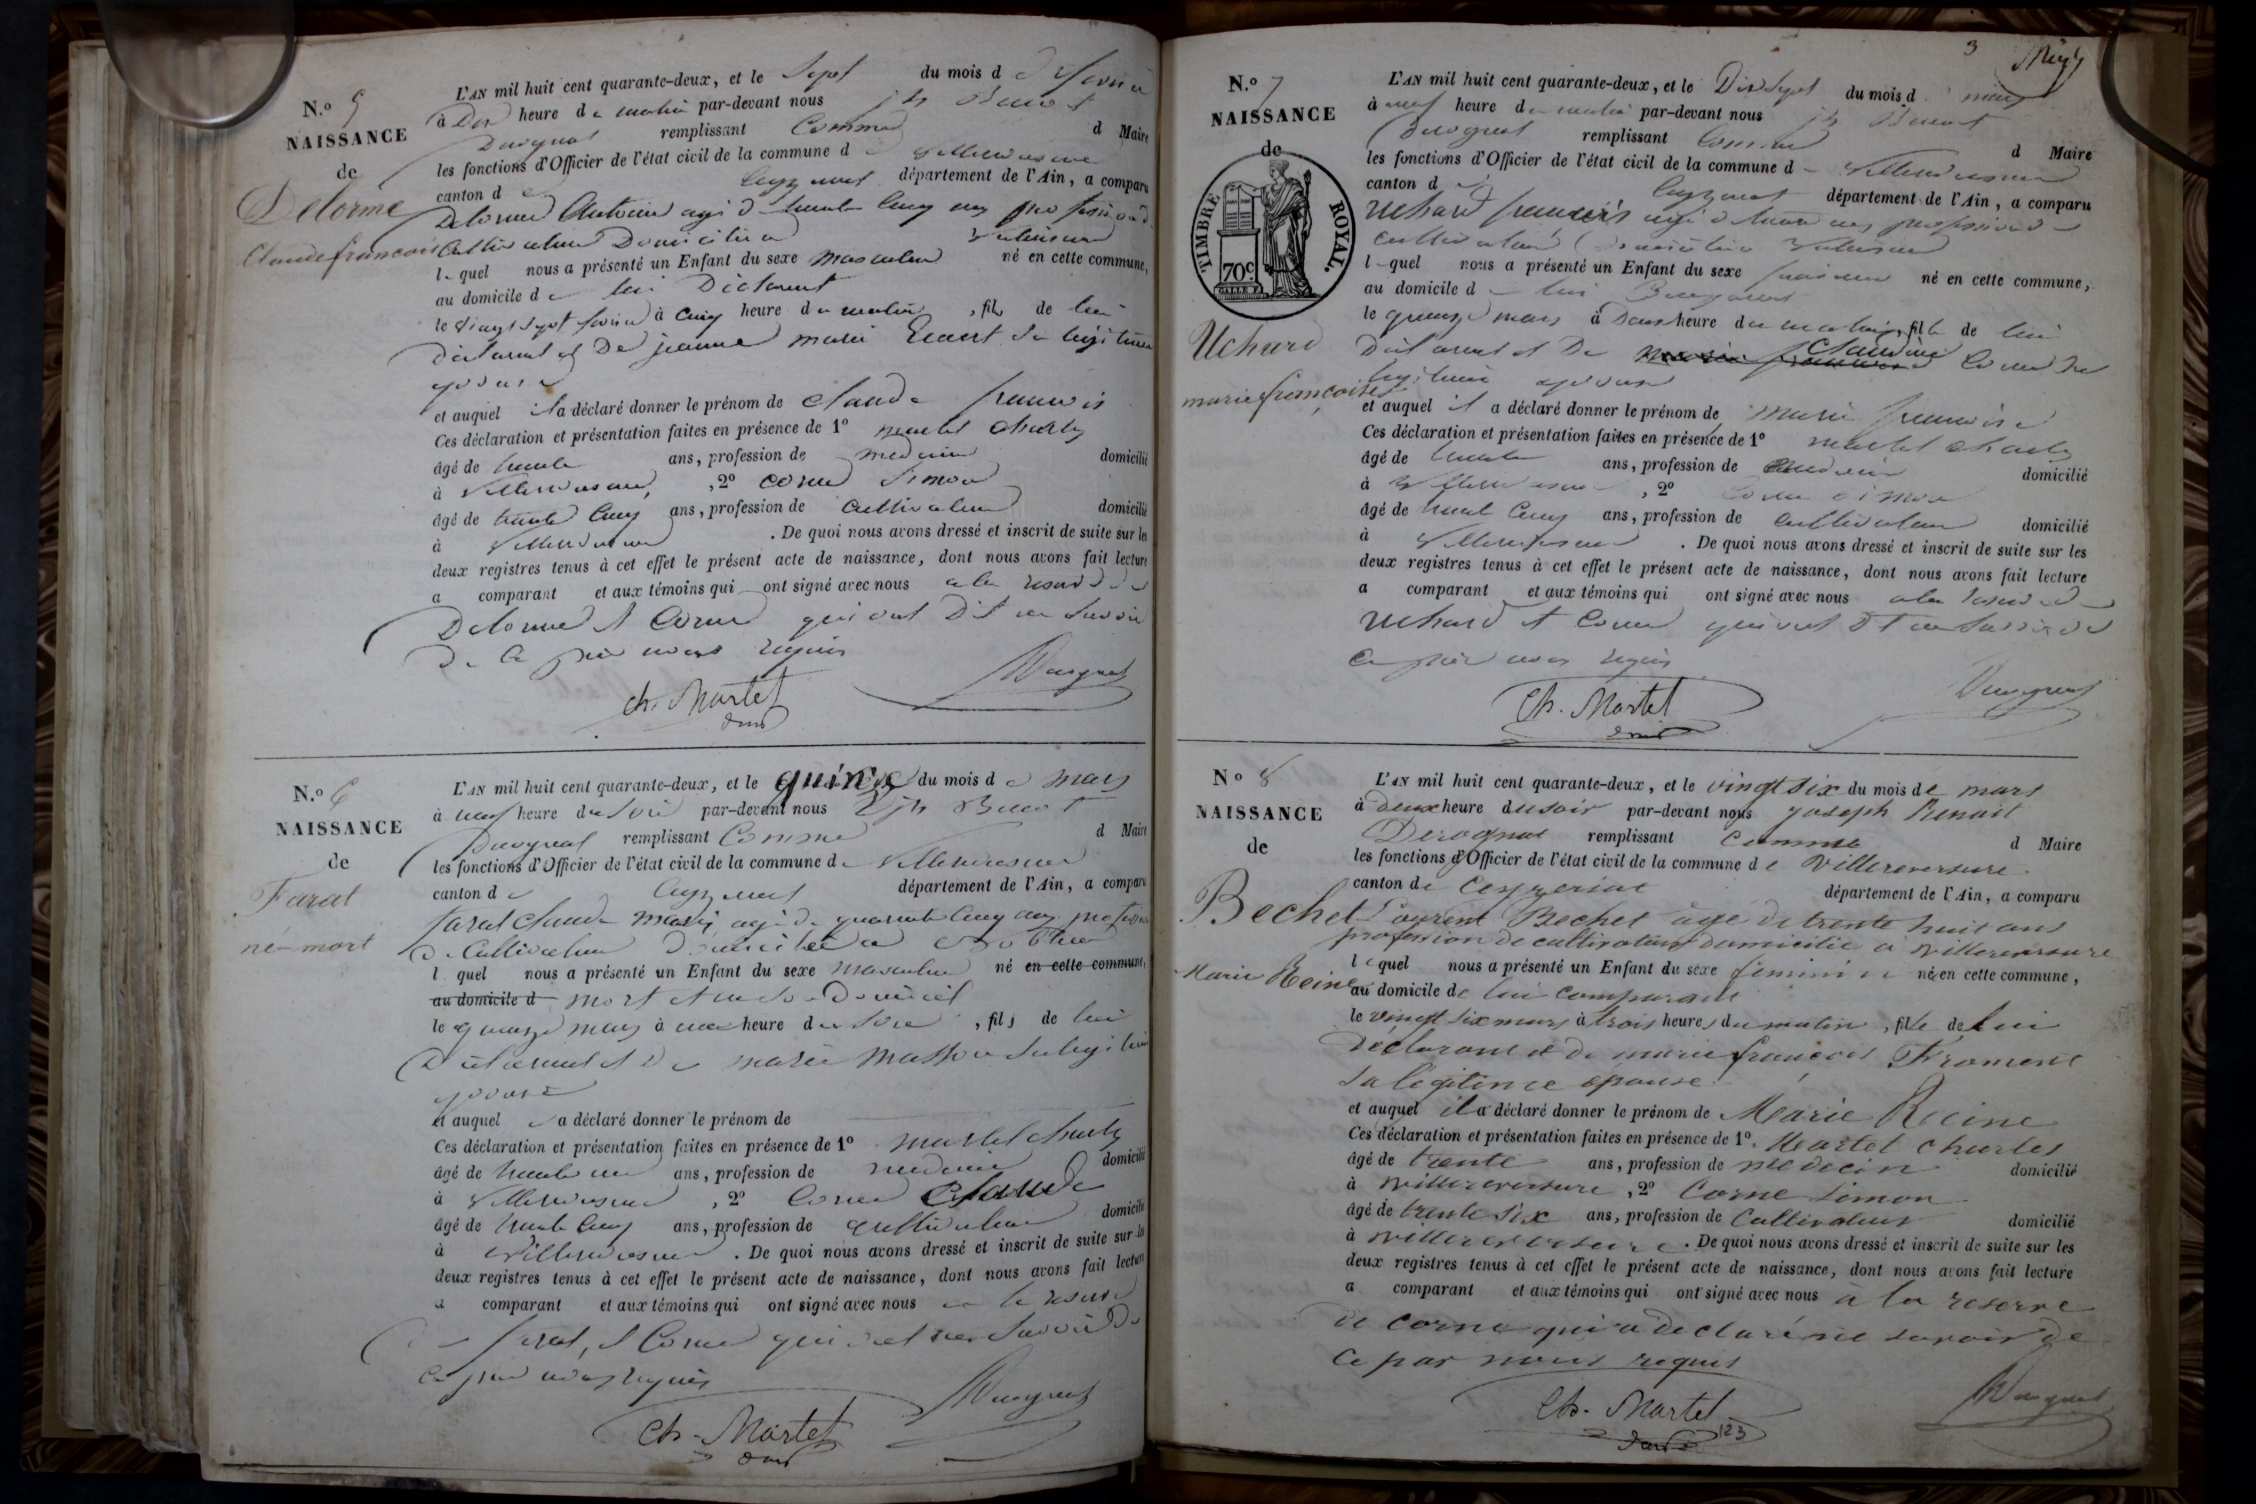 N.º 5
NAISSANCE
de
Delorme
Claude françois
L'AN mil huit cent quarante-deux, et le Sept du mois d
à Dix heure du matin par-devant nous jh Benoit
remplissant Comme d Maire
les fonctions d'Officier de l'état civil de la commune de Villereversure
canton de Ceyzeriat département de l'Ain, a comparu
Delorme Antoine agé de trente cinq ans profession de
Cultivateur Domicilié a
lequel nous a présenté un Enfant du sexe masculin né en cette commune,
au domicile de lui Déclarant
le Vingt Sept à cinq heure du matin, fils de lui
Déclarant et De jeanne marie Sa légitime
epouse
et auquel il a déclaré donner le prénom de claude françois
Ces déclaration et présentation faites en présence de 1º martel charles
âgé de trente ans, profession de medecin domicilié
à Villereversure, 2º corne Simon
âgé de trente cinq ans, profession de cultivateur domicilié
à Villereversure. De quoi nous avons dressé et inscrit de suite sur les
deux registres tenus à cet effet le présent acte de naissance, dont nous avons fait lecture
a comparant et aux témoins qui ont signé avec nous a la reserve de
Delorme et Corne qui ont Dit ne Savoir
De Ce par nous requis
Ch. Martel
N.º 6
NAISSANCE
de
Farat
né-mort
L'AN mil huit cent quarante-deux, et le quinze du mois de mars
à neuf heure du Soir par-devant nous jh Benoit
remplissant Comme d Maire
les fonctions d'Officier de l'état civil de la commune de Villereversure
canton de Ceyzeriat département de l'Ain, a comparu
farat claude marie, agé de quarante cinq ans profession
De Cultivateur Domicilié a
l quel nous a présenté un Enfant du sexe masculin né en cette commune,
au domicile d mort et en Son Domicile
le quinze mars à une heure du Soir, fils de lui
Déclarant et De marie Sa légitime
epouse
et auquel a déclaré donner le prénom de
Ces déclaration et présentation faites en présence de 1º martel charles
âgé de trente un ans, profession de medecin domicilié
à Villereversure, 2º Corne Claude
âgé de trente cinq ans, profession de cultivateur domicilié
à Villereversure. De quoi nous avons dressé et inscrit de suite sur les
deux registres tenus à cet effet le présent acte de naissance, dont nous avons fait lecture
a comparant et aux témoins qui ont signé avec nous a la reserve
De farat, et Corne qui ont ne Savoir De
Ce par nous requis
Ch. Martel
3
N.º 7
NAISSANCE
de
TIMBRE ROYAL.
70c
Uchard
marie françoise
L'AN mil huit cent quarante-deux, et le Dix Sept du mois d mars
à neuf heure du matin par-devant nous jh Benoit
remplissant Comme d Maire
les fonctions d'Officier de l'état civil de la commune de Villereversure
canton de Ceyzeriat département de l'Ain, a comparu
Uchard françois agé de trente ans profession de
cultivateur Domicilié Villereversure
lequel nous a présenté un Enfant du sexe feminin né en cette commune,
au domicile de lui
le quinze mars à Deux heure du matin, fille de lui
Déclarant et De marie claudine Corne Sa
légitime epouse
et auquel il a déclaré donner le prénom de marie françoise
Ces déclaration et présentation faites en présence de 1º martel charles
âgé de trente ans, profession de medecin domicilié
à Villereversure, 2º Corne Simon
âgé de trente cinq ans, profession de cultivateur domicilié
à Villereversure. De quoi nous avons dressé et inscrit de suite sur les
deux registres tenus à cet effet le présent acte de naissance, dont nous avons fait lecture
a comparant et aux témoins qui ont signé avec nous a la reserve de
Uchard et Corne qui ont Dit ne Savoir De
Ce par nous requis
Ch. Martel
Nº 8
NAISSANCE
de
Bechet
Marie Reine
L'AN mil huit cent quarante-deux, et le vingt six du mois de mars
à deux heure du soir par-devant nous joseph Benoit
Derognat remplissant Comme d Maire
les fonctions d'Officier de l'état civil de la commune de Villereversure
canton de Ceyzeriat département de l'Ain, a comparu
Laurent Bechet âgé de trente huit ans
profession de cultivateur domicilié à villereversure
lequel nous a présenté un Enfant du sexe féminin né en cette commune,
au domicile de lui comparant
le vingt six mars à trois heures du matin, fille de lui
déclarant et de marie françois Froment
sa légitime épouse
et auquel il a déclaré donner le prénom de Marie Reine
Ces déclaration et présentation faites en présence de 1º. Martel charles
âgé de trente ans, profession de medecin domicilié
à villereversure, 2º Corne Simon
âgé de trente six ans, profession de cultivateur domicilié
à villereversure. De quoi nous avons dressé et inscrit de suite sur les
deux registres tenus à cet effet le présent acte de naissance, dont nous avons fait lecture
a comparant et aux témoins qui ont signé avec nous à la reserve
de corne qui a declaré ne savoir de
ce par nous requis
Ch. Martel
123